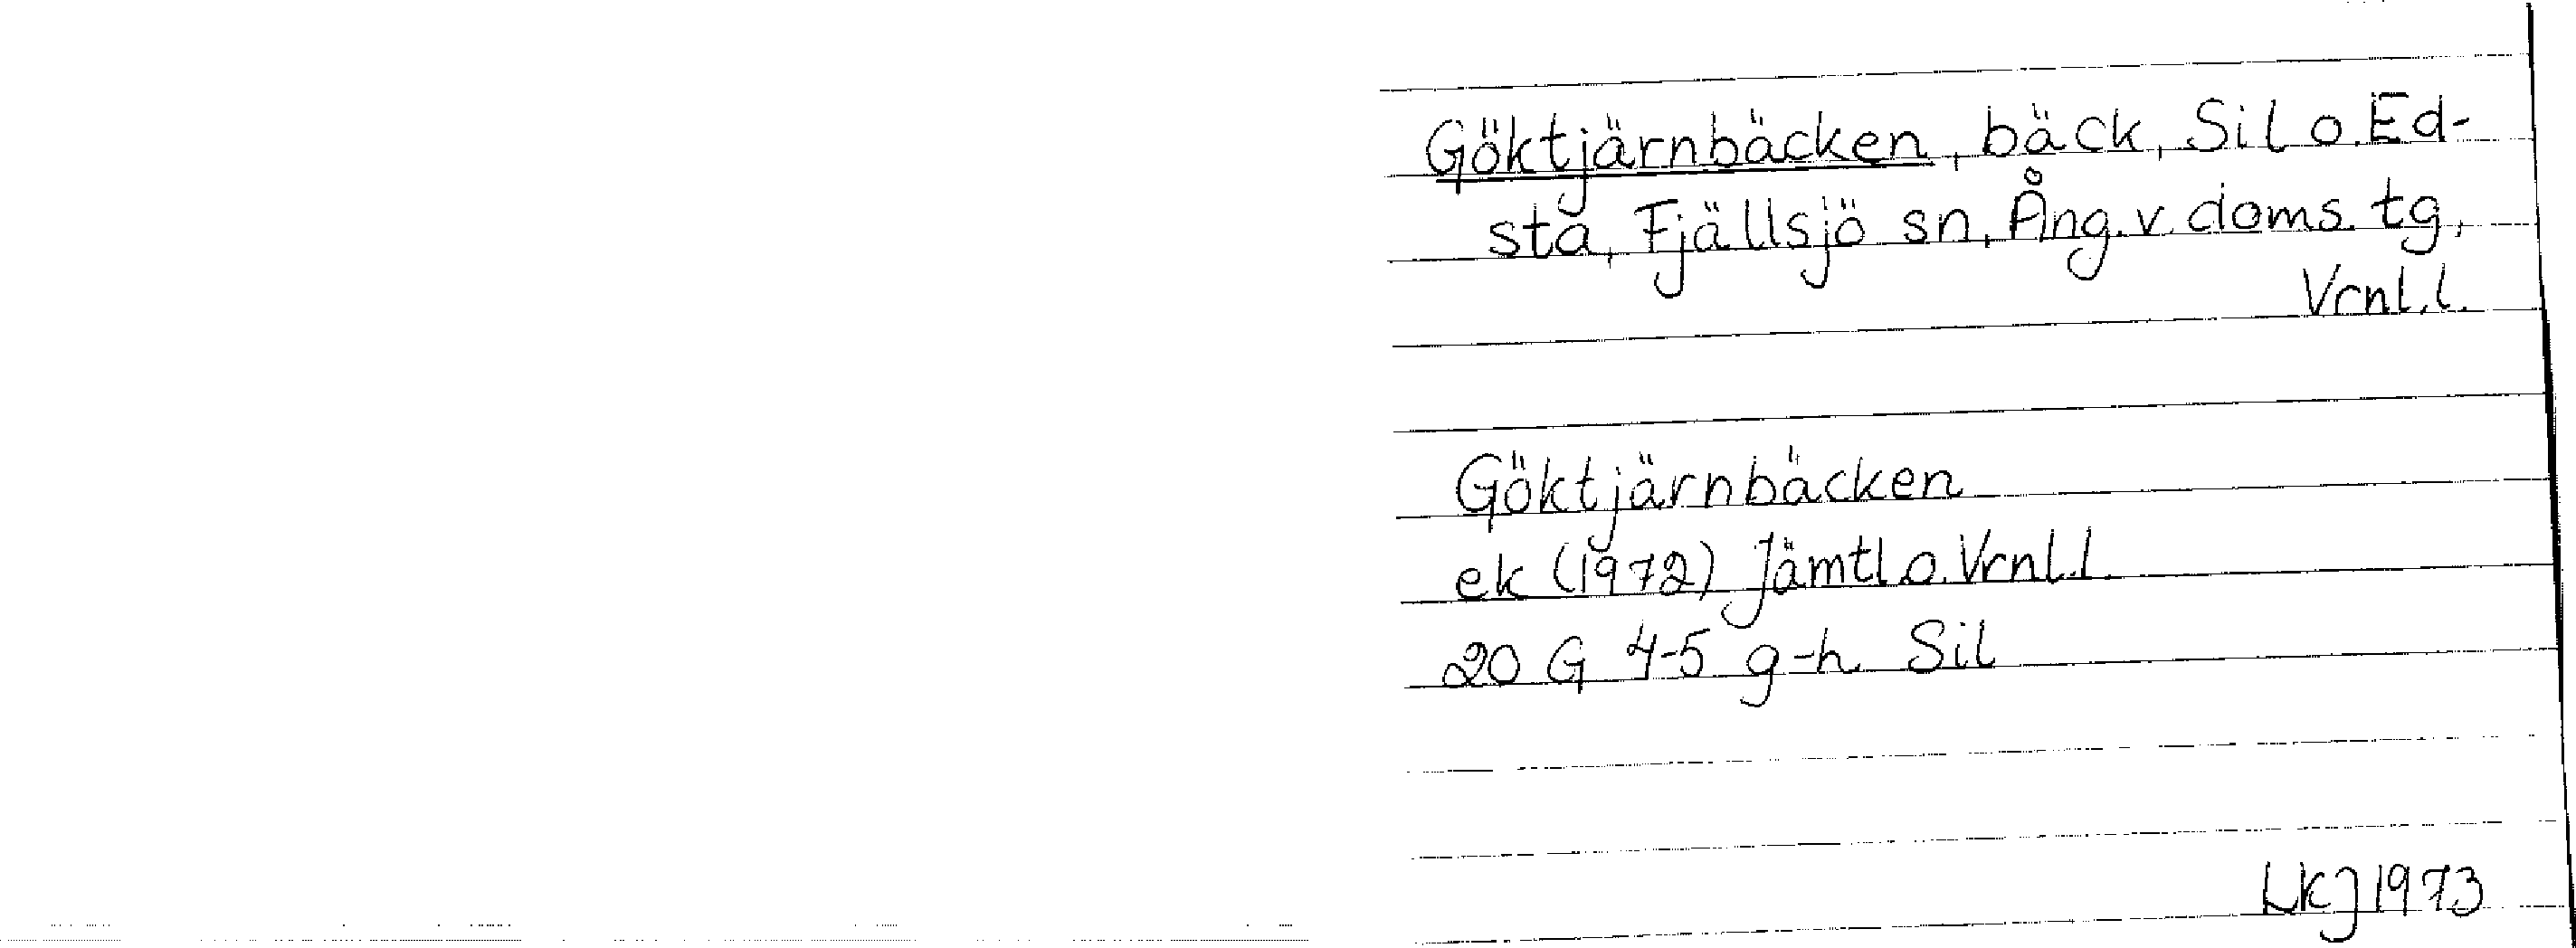 Göktjärnbäcken, bäck, Sil o. Ed-
sta, Fjällsjö sn, Ång. v. doms. tg,
Vrnl. l.
Göktjärnbäcken
ek (1972) Jämtl. o. Vrnl. l.
20 G 4-5 g-h Sil
LKJ 1973